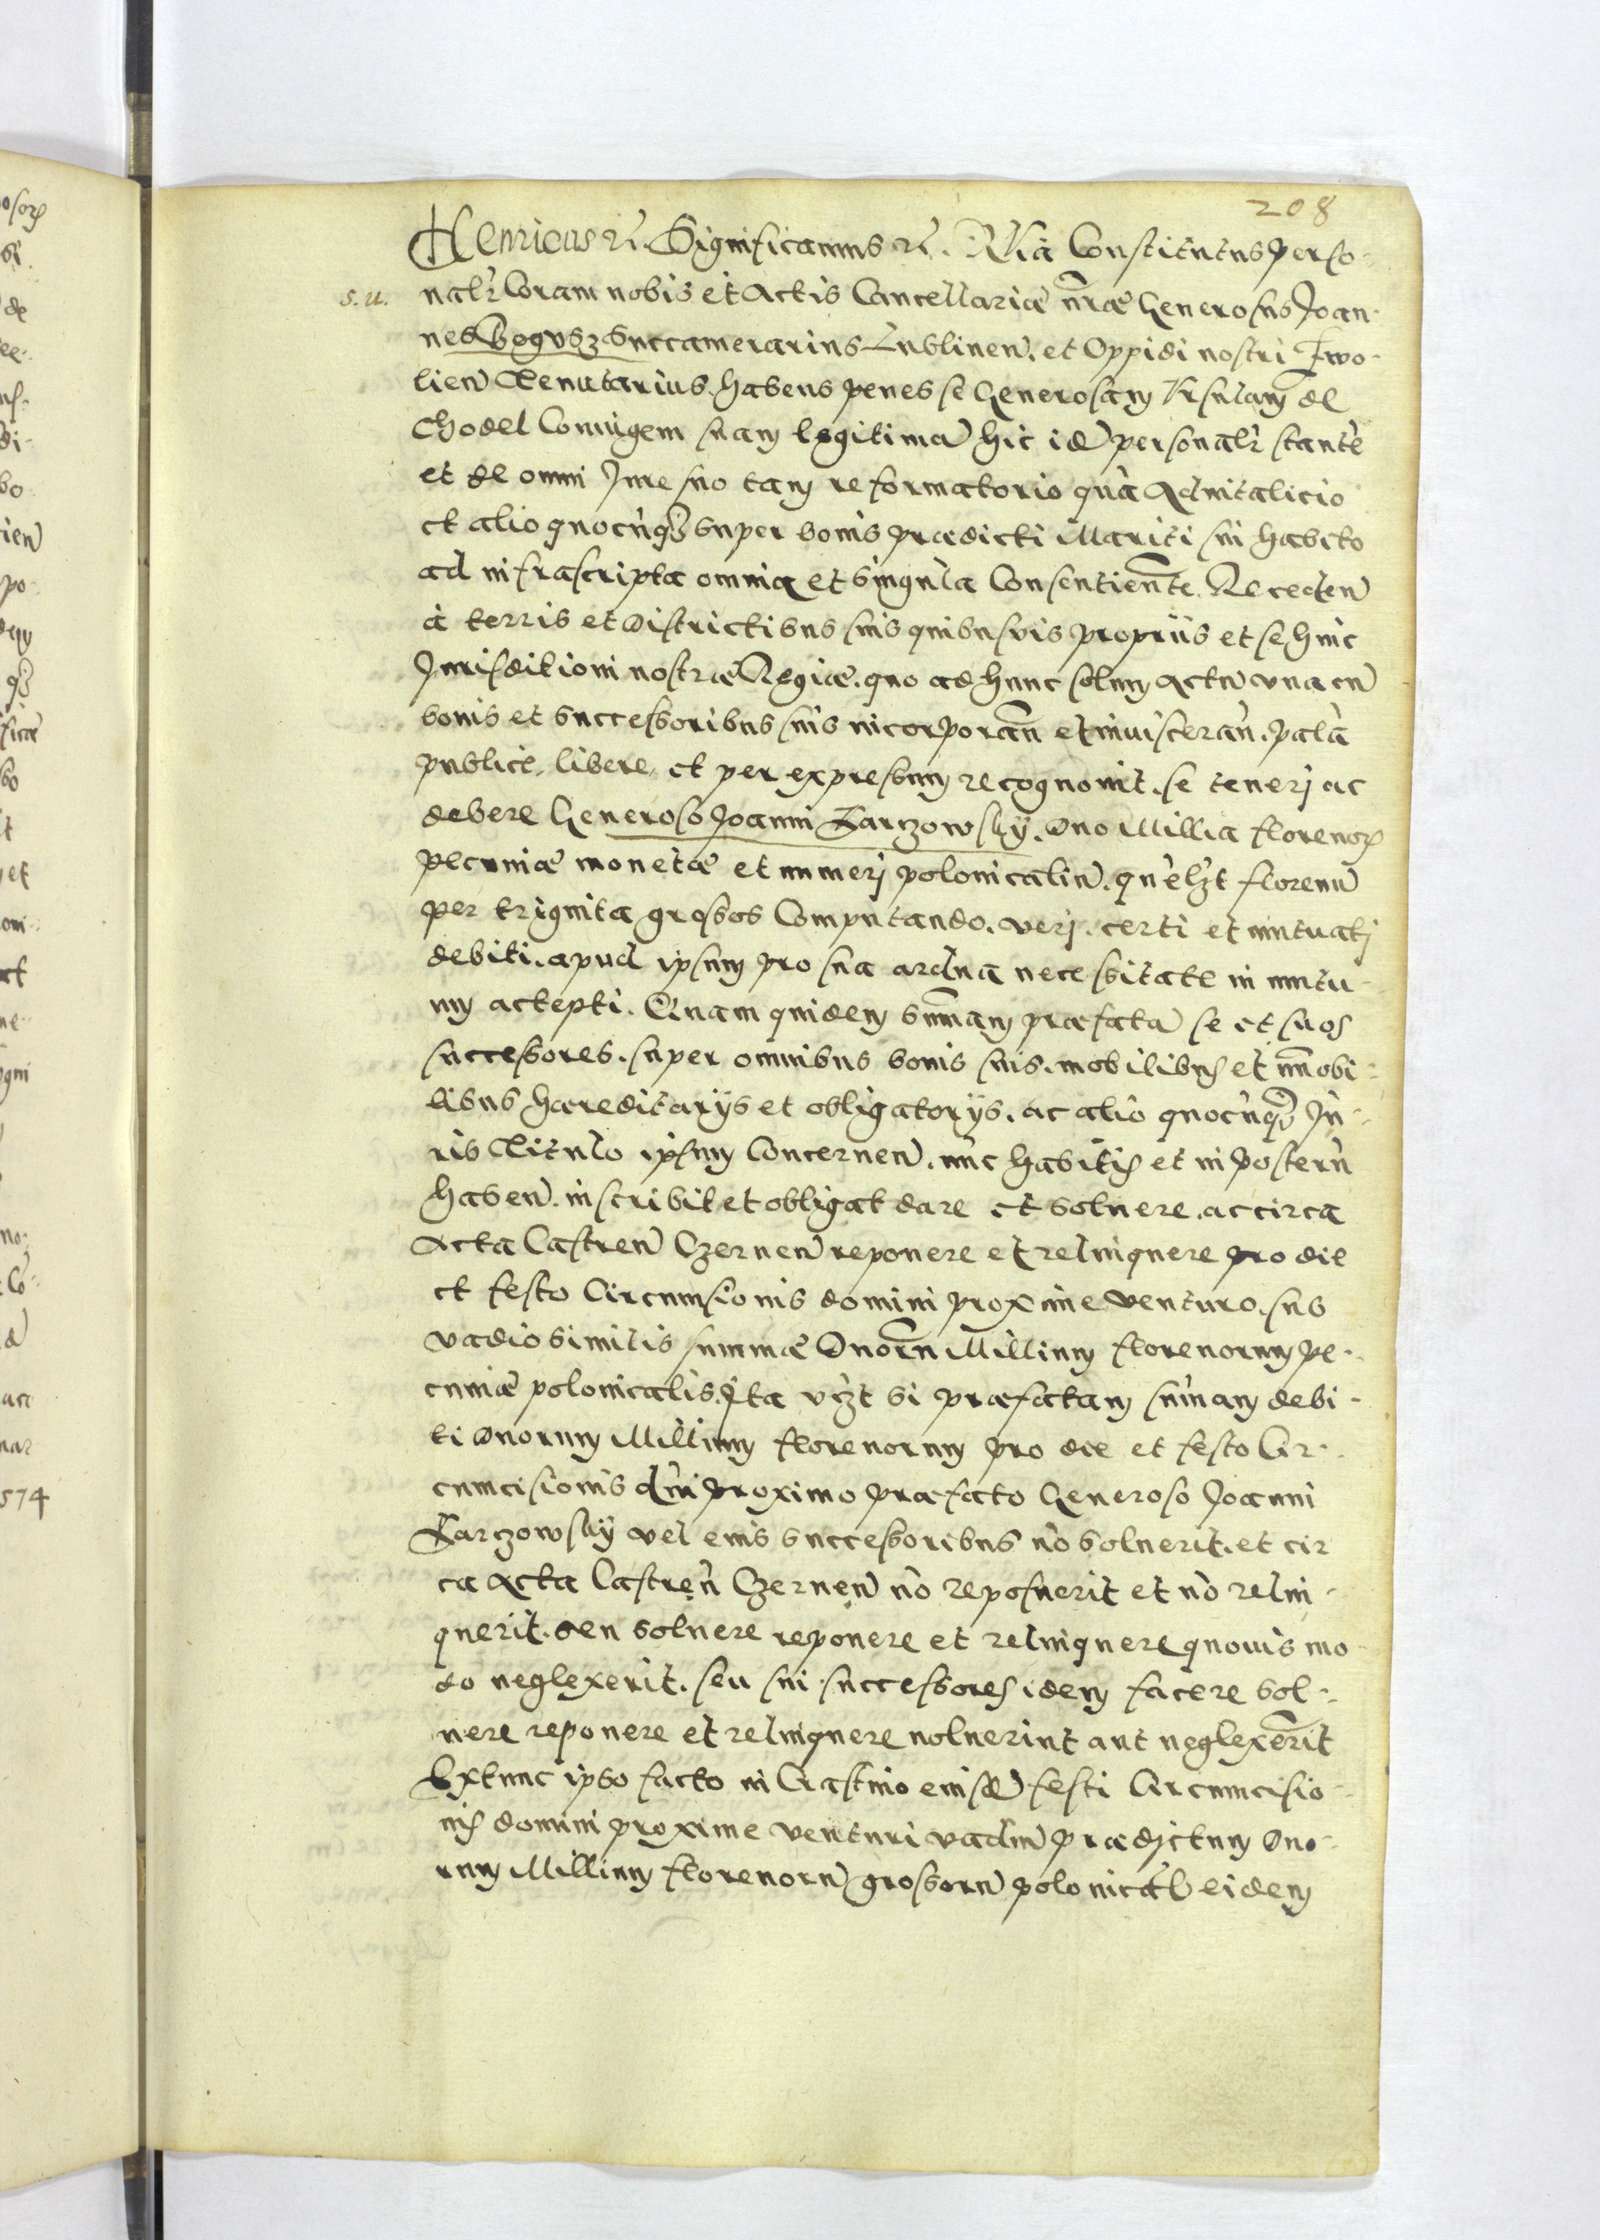 208
Henricus etc. Significamus etc. Quia Constitutus perso-
s. u. nalr Coram nobis et Actis Cancellariæ nræ Generosus Joan-
nes Bogusz Succamerarius Lublinen. et Oppidi nostri Zwo-
lien Tenutarius. habens penes se Generosam Ursulam de
Chodel Coniugem suam legitimã hic idẽ personalr stantẽ
et de omni Jure suo tam reformatorio quã Aduitalicio
et alio quocũq3 super bonis prædicti Mariti sui habito
ad infrascripta omnia et singula Consentiente. Receden
à terris et districtibus suis quibusvis propriis et se huic
Jurisditioni nostræ Regiæ. quo ad hunc solum actũ una cũ
bonis et successoribus suis incorporan et inuisceran. palã
publice, libere, et per expressum recognouit. se teneri ac
debere Generoso Joanni Karzowsky. Duo Millia floreno℞
pecuniæ monetæ et numeri polonicaliũ. quẽl3t florenũ
per triginta grossos Computando. veri. certi et mutuati
debiti. apud ipsum pro sua ardua necessitate in mutu-
um accepti. Quam quidem summam præfatã se et suos
successores. super omnibus bonis suis. mobilibus et immobi-
libus hæreditariis et obligatoriis. ac alio quocũq3 Ju-
ris Titulo ipsum Concernen. nũc habitis et in posterũ
haben. inscribit et obligat dare et soluere. ac circa
Acta Castren Czernen reponere et relinquere pro die
et festo Circumsionis domini proxime venturo. sub
vadio similis summæ Duorũ Millium florenorum pe-
cuniæ polonicalis. Ita v3t si præfatam sum̃am debi-
ti Duorum Millium florenorum pro die et festo Cir-
cumcisionis dni proximo præfato Generoso Joanni
Karzowsky vel eius successoribus nõ soluerit. et cir
ca Acta Castren Czernen nõ reposuerit et nõ relin-
querit. seu soluere reponere et relinquere quouis mo-
do neglexerit. seu sui successores idem facere sol-
uere reponere et relinquere noluerint aut neglexerit
Extunc ipso facto in Crastino eiusdẽ festi Circumcisio-
nis domini proxime venturi vadiũ prædictum Duo-
rum Millium florenorũ grossorũ polonical eidem